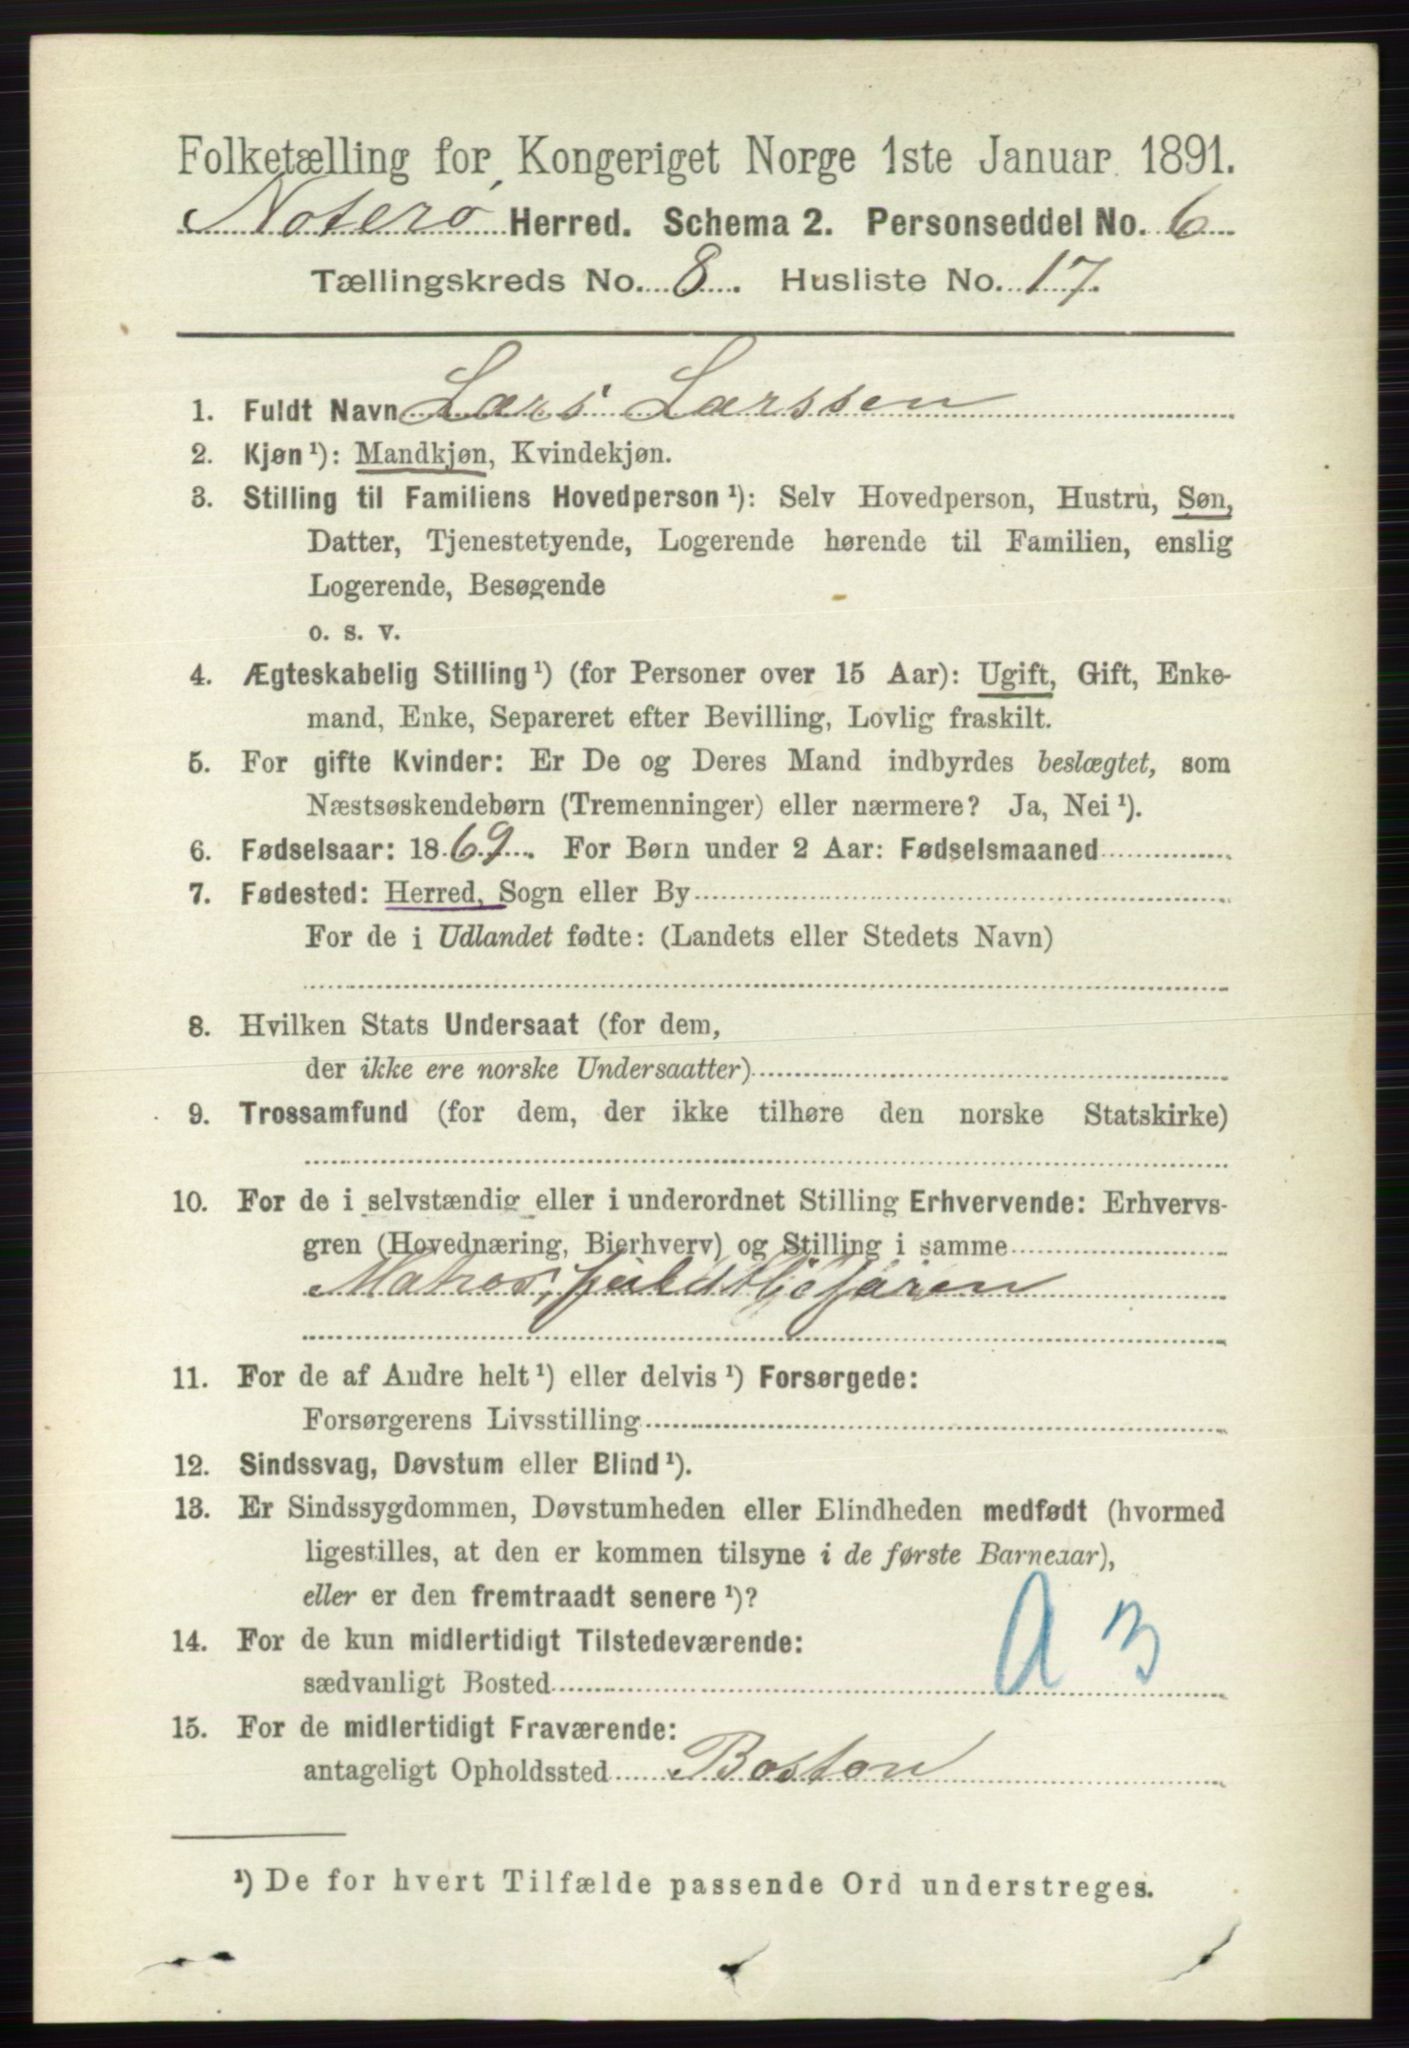 Folketælling for Kongeriget Norge 1ste Januar 1891.
Noterø Herred. Schema 2. Personseddel No. 6
Tællingskreds No. 8. Husliste No. 17.
1. Fuldt Navn Lars Larssen
2. Kjøn¹): Mandkjøn, Kvindekjøn.
3. Stilling til Familiens Hovedperson¹): Selv Hovedperson, Hustru, Søn,
Datter, Tjenestetyende, Logerende hørende til Familien, enslig
Logerende, Besøgende
o. s. v.
4. Ægteskabelig Stilling¹) (for Personer over 15 Aar): Ugift, Gift, Enke-
mand, Enke, Separeret efter Bevilling, Lovlig fraskilt.
5. For gifte Kvinder: Er De og Deres Mand indbyrdes beslægtet, som
Næstsøskendebørn (Tremenninger) eller nærmere? Ja, Nei¹).
6. Fødselsaar: 1869. For Børn under 2 Aar: Fødselsmaaned
7. Fødested: Herred, Sogn eller By
For de i Udlandet fødte: (Landets eller Stedets Navn)
8. Hvilken Stats Undersaat (for dem,
der ikke ere norske Undersaatter)
9. Trossamfund (for dem, der ikke tilhøre den norske Statskirke)
10. For de i selvstændig eller i underordnet Stilling Erhvervende: Erhvervs-
gren (Hovednæring, Bierhverv) og Stilling i samme
Matros,
11. For de af Andre helt¹) eller delvis¹) Forsørgede:
Forsørgerens Livsstilling
12. Sindssvag, Døvstum eller Blind¹).
13. Er Sindssygdommen, Døvstumheden eller Blindheden medfødt (hvormed
ligestilles, at den er kommen tilsyne i de første Barneaar),
eller er den fremtraadt senere¹)?
A 3
14. For de kun midlertidigt Tilstedeværende:
sædvanligt Bosted
15. For de midlertidigt Fraværende:
antageligt Opholdssted Boston
¹) De for hvert Tilfælde passende Ord understreges.